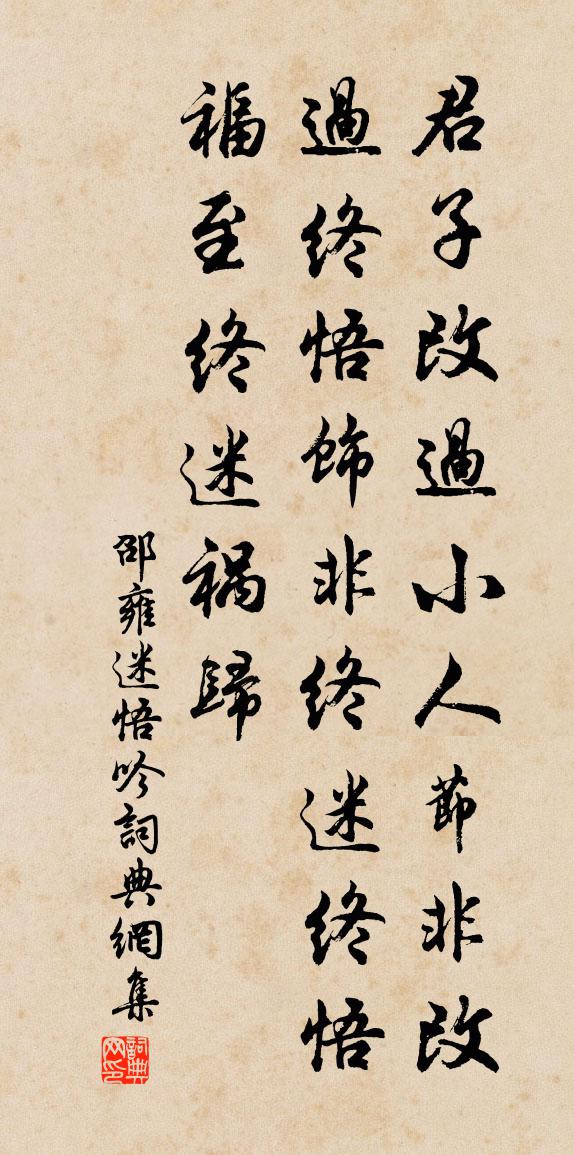 君子改過小人節非改
過終悟飾非終迷終悟
福至終迷禍歸
邵雍迷悟吟詞典網集
詞典网印